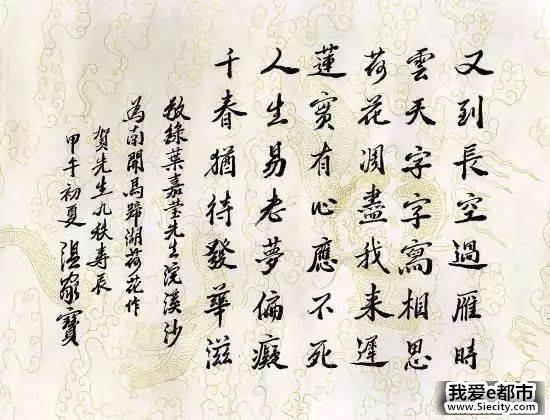 又到長空過雁時
雲天字字寫相思
荷花凋盡我来遲
蓮實有心應不死
人生易老夢偏癡
千春猶待發華滋
敬錄葉嘉瑩先生浣溪沙
為南開馬蹄湖荷花作
賀先生九秩寿辰
甲午初夏 温家寶
我爱e都市
www.5iecity.com